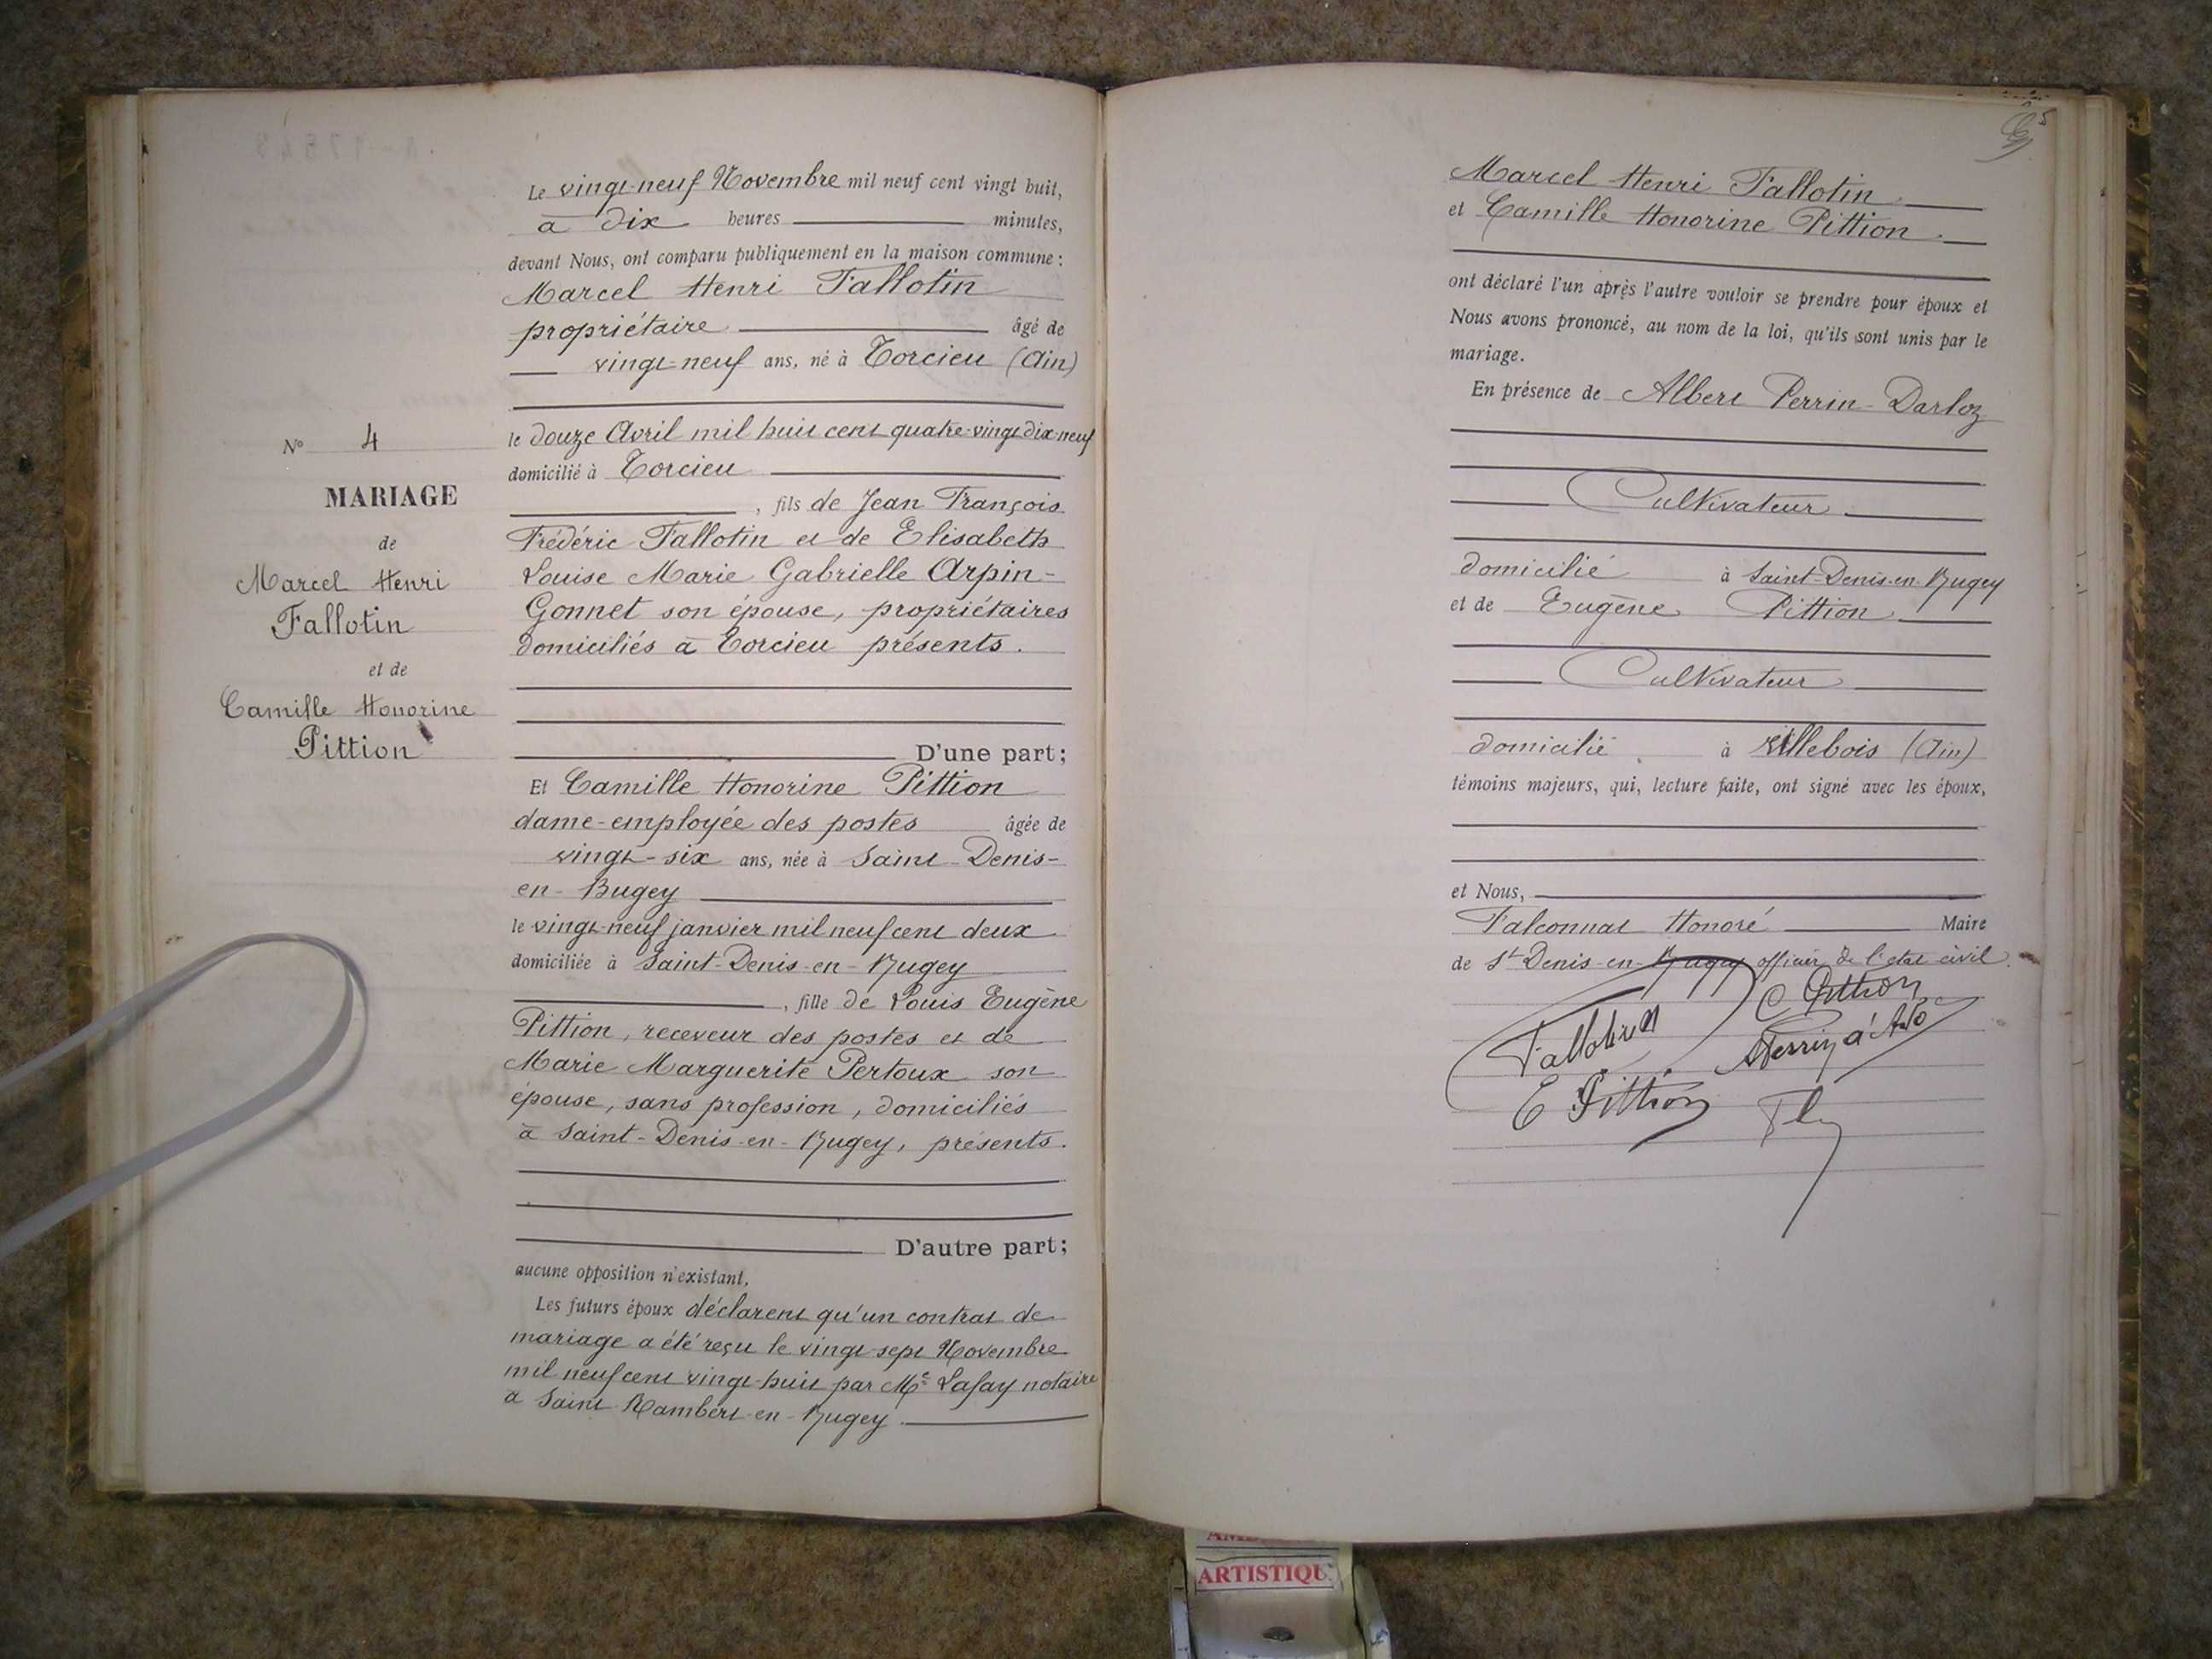 Le vingt-neuf Novembre mil neuf cent vingt huit,
à dix heures minutes,
devant Nous, ont comparu publiquement en la maison commune :
Marcel Henri Fallotin
propriétaire âgé de
vingt-neuf ans, né à Torcieu (Ain)
le douze Avril mil huit cent quatre-vingt dix-neuf
domicilié à Torcieu
, fils de Jean François
Frédéric Fallotin et de Elisabeth
Louise Marie Gabrielle Arpin-
Gonnet son épouse, propriétaires
domiciliés à Torcieu présents.
D'une part;
Et Camille Honorine Pittion
dame-employée des postes âgée de
vingt-six ans, née à Saint-Denis-
en-Bugey
le vingt-neuf janvier mil neuf cent deux
domiciliée à Saint-Denis-en-Bugey
, fille de Louis Eugène
Pittion, receveur des postes et de
Marie Marguerite Pertoux son
épouse, sans profession, domiciliés
à Saint-Denis-en-Bugey, présents.
D'autre part;
aucune opposition n'existant,
Les futurs époux déclarent qu'un contrat de
mariage a été reçu le vingt-sept Novembre
mil neuf cent vingt-huit par Me Lafay notaire
à Saint-Rambert-en-Bugey
No 4
MARIAGE
de
Marcel Henri
Fallotin
et de
Camille Honorine
Pittion
5
Marcel Henri Fallotin
et Camille Honorine Pittion
ont déclaré l'un après l'autre vouloir se prendre pour époux et
Nous avons prononcé, au nom de la loi, qu'ils sont unis par le
mariage.
En présence de Albert Perrin-Darloz
Cultivateur
domicilié à Saint-Denis-en-Bugey
et de Eugène Pittion
Cultivateur
domicilié à Villebois (Ain)
témoins majeurs, qui, lecture faite, ont signé avec les époux,
et Nous,
Falconnat Honoré Maire
de St Denis-en-Bugey officier de l'etat civil.
C Pittion
Fallotin
E Pittion
ARTISTIQU